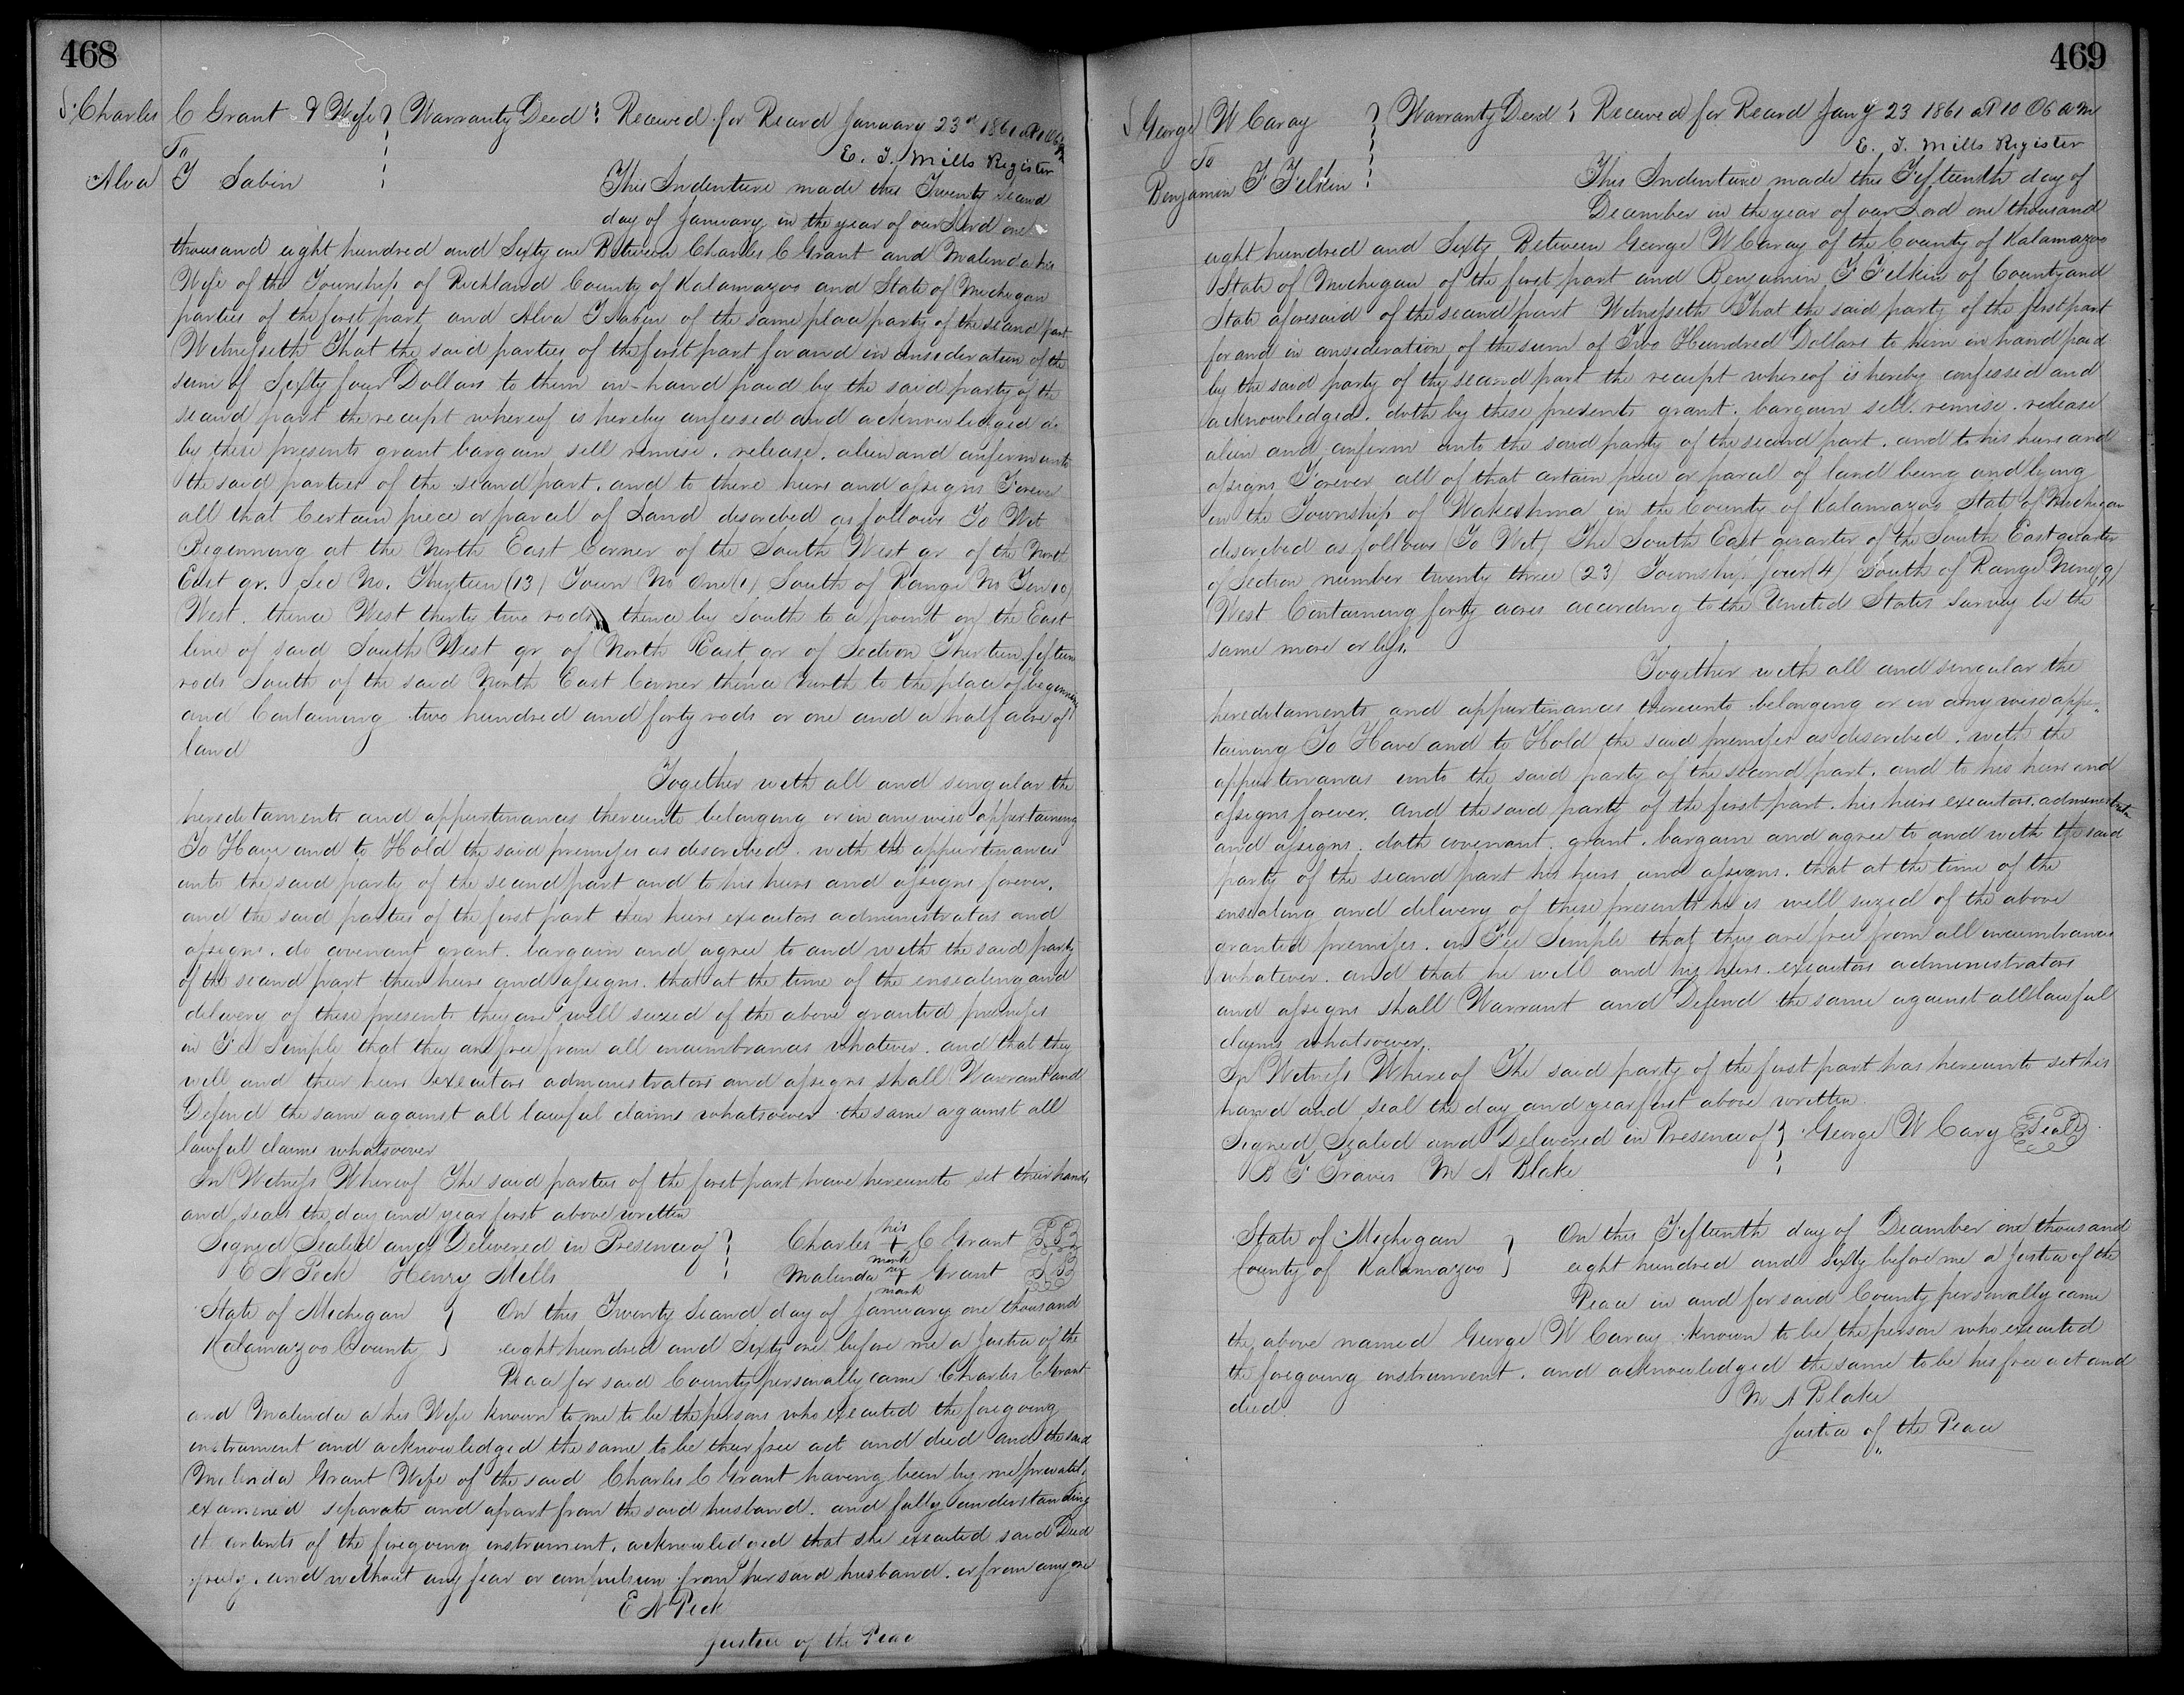 468
Charles C Grant & Wife Warranty Deed Received for Record January 23rd 1861
To
E. T. Mills Register
Alva T Sabin
This Indenture made this Twenty second
day of January in the year of our Lord one
thousand eight hundred and Sixty one Between Charles C Grant and Malinda his
Wife of the Township of Richland County of Kalamazoo and State of Michigan
parties of the first part and Alva T Sabin of the same place party of the second part
Witnesseth That the said parties of the first part for and in consideration of the
sum of Sixty four Dollars to them in hand paid by the said party of the
second part the receipt whereof is hereby confessed and acknowledged do
by these presents grant bargain sell remise. release. alien and confirm unto
the said parties of the second part. and to there heirs and assigns Forever
all that Certain piece or parcel of Land described as follows To Wit
Beginning at the North East Corner of the South West qr of the North
East qr. Sec No. Thirteen (13) Town No One (1) South of Range No Ten 10)
West. thence West thirty two rods thence by South to a point on the East
line of said South West qr of North East qr of Section Thirteen fifteen
rods South of the said North East Corner thence North to the place of beginning
and Containing two hundred and forty rods or one and a half acre of
land
Together with all and singular the
hereditaments and appurtenances thereunto belonging or in anywise appertaining
To Have and to Hold the said premises as described. with the appurtenances
unto the said party of the second part and to his heirs and assigns forever.
and the said parties of the first part their heirs executors administrators and
assigns. do covenant grant. bargain and agree to and with the said party
of the second part their heirs and assigns. that at the time of the ensealing and
delivery of these presents they are well seized of the above granted premises
in Fee Simple that they are free from all incumbrances whatever. and that they
will and their heirs executors administrators and assigns shall Warrant and
Defend the same against all lawful claims whatsoever the same against all
lawful claims whatsoever
In Witness Whereof The said parties of the first part have hereunto set their hands
and seals the day and year first above written
Signed Sealed and Delivered in Presence of Charles his + mark C Grant L S
E N Peck Henry Mills Malinda + mark Grant L S
State of Michigan On this Twenty Second day of January one thousand
Kalamazoo County eight hundred and Sixty one before me a Justice of the
Peace for said County personally came Charles C Grant
and Malinda a his Wife known to me to be the persons who executed the foregoing
instrument and acknowledged the same to be their free act and deed and the said
Malinda Grant Wife of the said Charles C Grant having been by me privately
examined separate and apart from the said husband. and fully understanding
the contents of the foregoing instrument. acknowledged that she executed said Deed
freely. and without any fear or compulsion from her said husband. or from any one
E N Peck
Justice of the Peace
469
George W Caray Warranty Deed Received for Record Jany 23 1861 at 10 O6 a m
To
E. T. Mills Register
Benjamin F Felkin
This Indenture made this Fifteenth day of
December in the year of our Lord one thousand
eight hundred and Sixty Between George W Caray of the County of Kalamazoo
State of Michigan of the first part and Benjamin F Felkin of County and
State aforesaid of the second part Witnesseth That the said party of the first part
for and in consideration of the sum of Two Hundred Dollars to him in hand paid
by the said party of the second part the receipt whereof is hereby confessed and
acknowledged. doth by these presents grant. bargain sell. remise. release
alien and confirm unto the said party of the second part. and to his heirs and
assigns Forever all of that certain piece or parcel of land being and lying
in the Township of Wakeshma in the County of Kalamazoo State of Michigan
described as follows (To Wit) The South East quarter of the South East quarter
of Section number twenty three (23) Township four (4) South of Range Nine (9)
West Containing forty acres according to the United States Survey be the
same more or less.
Together with all and singular the
hereditaments and appurtenances thereunto belonging or in any wise apper
taining To Have and to Hold the said premises as described. with the
appurtenances unto the said party of the second part. and to his heirs and
assigns forever. And the said party of the first part. his heirs executors. administrators
and assigns. doth covenant. grant. bargain and agree to and with the said
party of the second part his heirs and assigns. that at the time of the
ensealing and delivery of these presents he is well seized of the above
granted premises. in Fee Simple that they are free from all incumbrances
whatever. and that he will and his heirs. executors administrators
and assigns shall Warrant and Defend the same against all lawful
claims whatsoever.
In Witness Whereof The said party of the first part has hereunto set his
hand and seal the day and year first above written
Signed Sealed and Delivered in Presence of George W Cary Seal
B F Travis M A Blake
State of Michigan On this Fifteenth day of December one thousand
County of Kalamazoo eight hundred and Sixty before me a Justice of the
Peace in and for said County personally came
the above named George W Caray known to be the person who executed
the foregoing instrument. and acknowledged the same to be his free act and
deed
M A Blake
Justice of the Peace